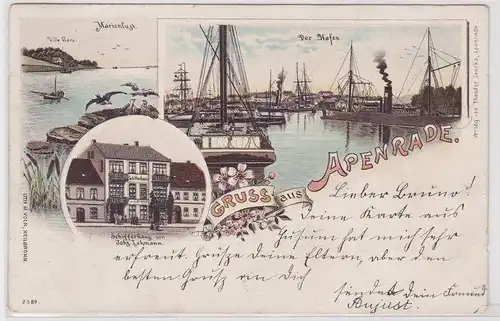 Marienlust.
Villa Gara.
Der Hafen
GRUSS aus APENRADE.
Schifferhaus von
Johs. Lehmann.
Lieber Bruno!
Deine Karte aus
Husum hat mich sehr
erfreut. Grüße Deine Eltern, aber den
besten Gruß an Dich
sendet Dein Freund
August.
Verlag von Theodor Jessen, Apenrade.
LITH. H. VOLK, HEILBRONN
2389.